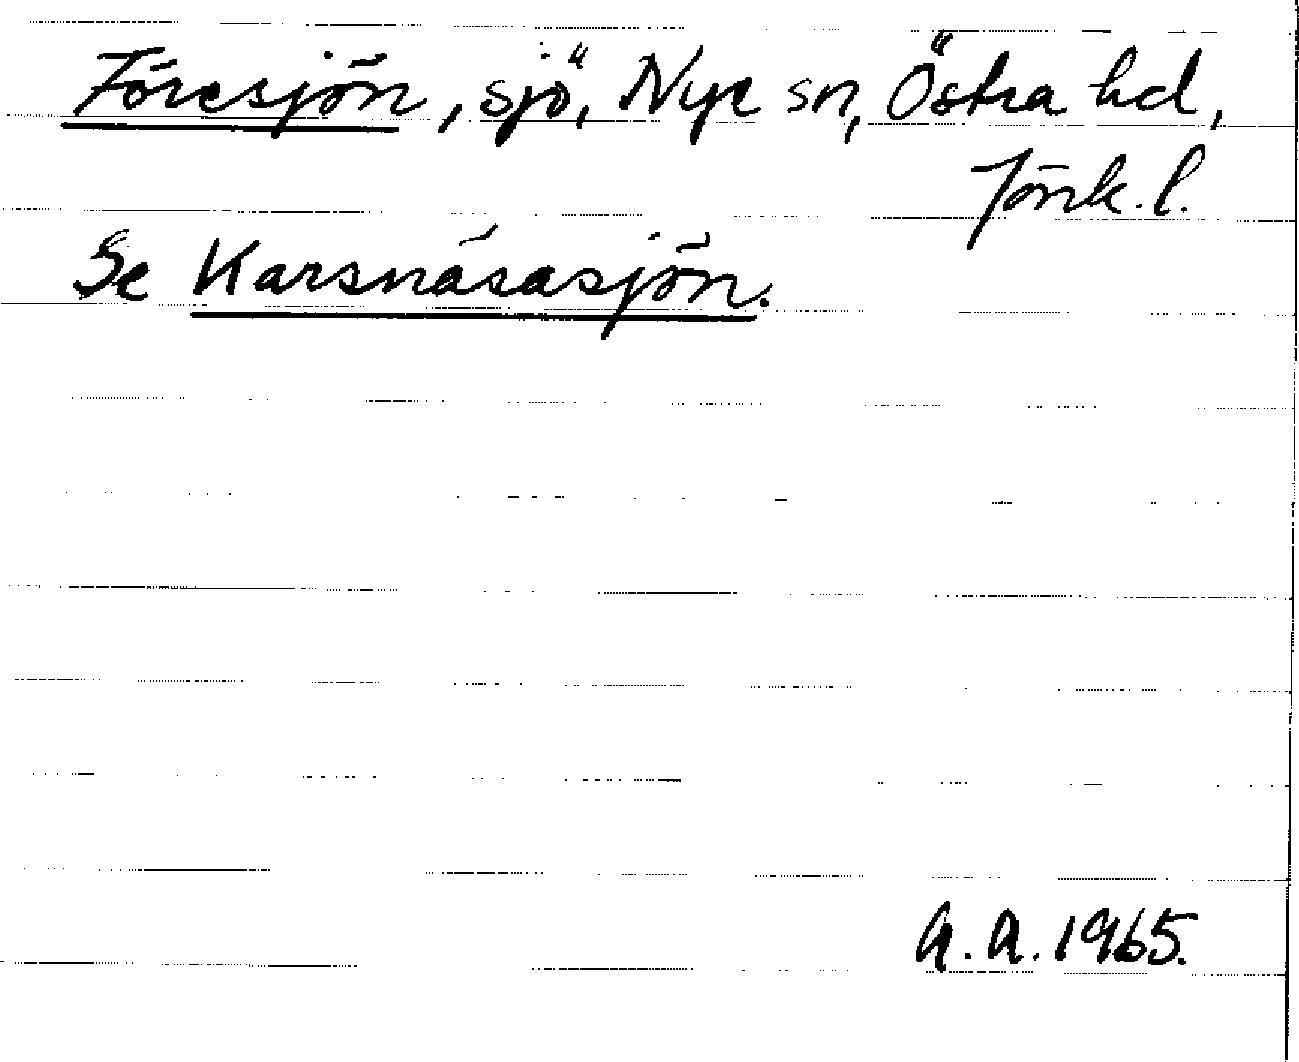 Föresjön, sjö, Nye sn, Östra hd,
Jönk. l.
Se Karsnäsasjön.
A. A. 1965.